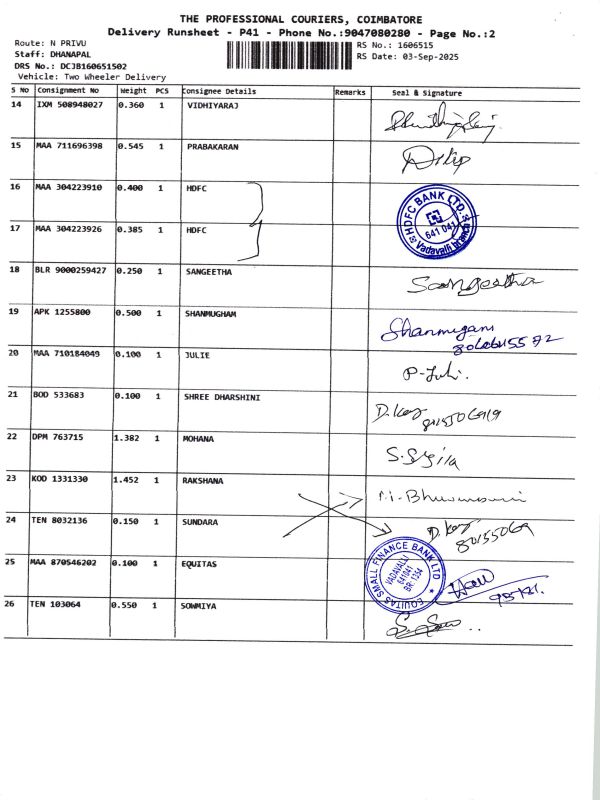 THE PROFESSIONAL COURIERS, COIMBATORE
Delivery Runsheet - P41 - Phone No.:9047080280 - Page No.:2
Route: N PRIVU
Staff: DHANAPAL
DRS No.: DCJB160651502
Vehicle: Two Wheeler Delivery
RS No.: 1606515
RS Date: 03-Sep-2025
S No Consignment No Weight PCS Consignee Details Remarks Seal & Signature
14 IXM 508948027 0.360 1 VIDHIYARAJ
15 MAA 711696398 0.545 1 PRABAKARAN Dilip
16 MAA 304223910 0.400 1 HDFC
HDFC BANK LTD.
641 041
Vadavalli branch
17 MAA 304223926 0.385 1 HDFC
18 BLR 9000259427 0.250 1 SANGEETHA Sangeetha
19 APK 1255800 0.500 1 SHANMUGHAM Shanmugam
20 MAA 710184049 0.100 1 JULIE P-Juli.
21 BOD 533683 0.100 1 SHREE DHARSHINI
22 DPM 763715 1.382 1 MOHANA
23 KOD 1331330 1.452 1 RAKSHANA
24 TEN 8032136 0.150 1 SUNDARA
80155069
25 MAA 870546202 0.100 1 EQUITAS
EQUITAS SMALL FINANCE BANK LTD
VADAVALLI
641041
BR: 1354
26 TEN 103064 0.550 1 SOWMIYA